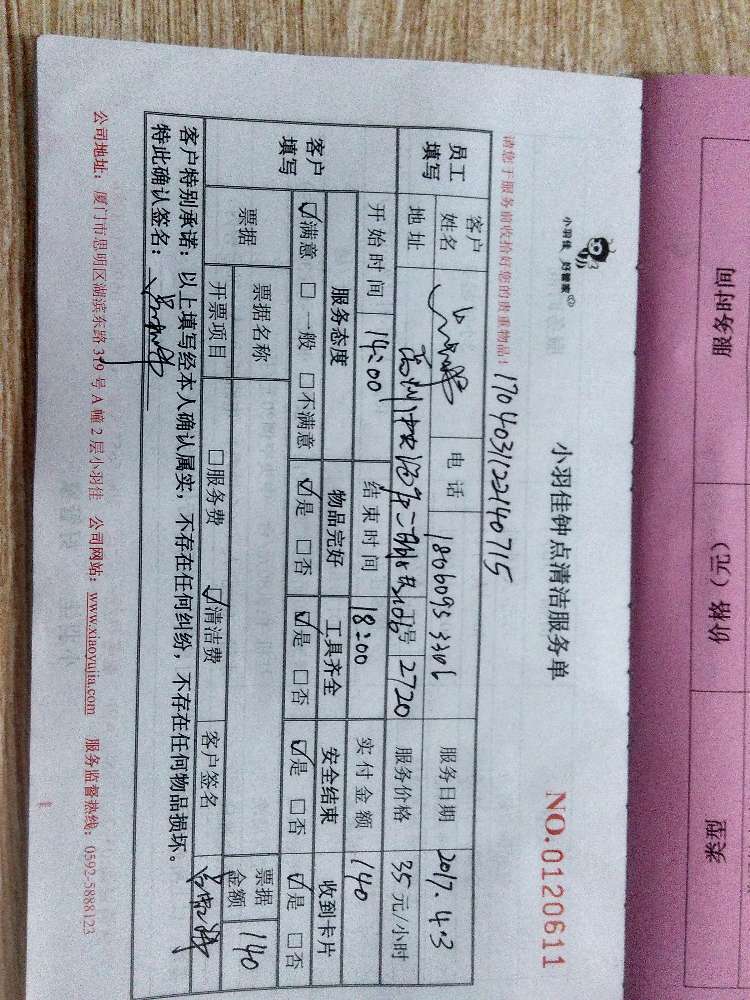 小羽佳 好管家
小羽佳钟点清洁服务单 NO.0120611
请您于服务前收拾好您的贵重物品! 170403122140715
员工填写 客户姓名 电话 18060953306 服务日期 2017.4.3
地址 工号 2720 服务价格 35元/小时
开始时间 14:00 结束时间 18:00 实付金额 140
客户填写 服务态度 物品完好 工具齐全 安全结束 收到卡片
☑满意 □一般 □不满意 ☑是 □否 ☑是 □否 ☑是 □否 ☑是 □否
票据 票据名称 票据金额 140
开票项目 □服务费 ☑清洁费 客户签名
客户特别承诺:以上填写经本人确认属实,不存在任何纠纷,不存在任何物品损坏。
特此确认签名:
公司地址:厦门市思明区湖滨东路319号A幢2层小羽佳 公司网站:www.xiaoyujia.com 服务监督热线:0592-5888123
类型 价格(元) 服务时间